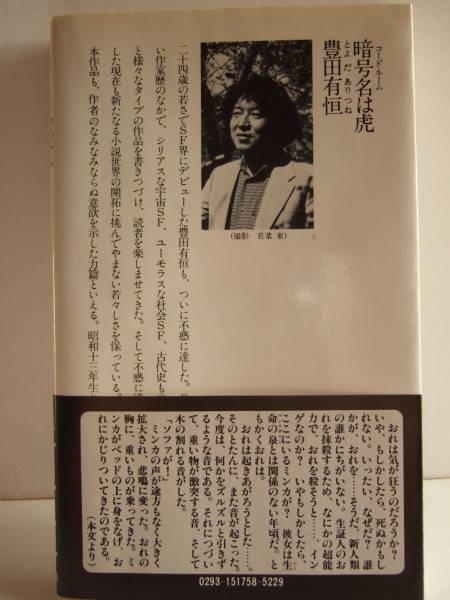 コード・ネーム
暗号名は虎
とよ だ ありつね
豊田有恒
(撮影 若菜 東)
二十四歳の若さでSF界にデビューした豊田有恒も、ついに不惑に達した。
い作家歴のなかで、シリアスな宇宙SF、ユーモラスな社会SF、古代史も
と様々なタイプの作品を書きつづけ、読者を楽しませてきた。そして不惑に達
した現在も新たなる小説世界の開拓に挑んでやまない若々しさを保っている。
本作品も、作者のなみなみならぬ意欲を示した力篇といえる。昭和十三年生
おれは気が狂ったのだろうか?
いや、もしかしたら、死ぬかもし
れない。いったい、なぜだ? 誰
かが、おれを……そうだ、新人類
の誰かにちがいない。生証人のお
れを抹殺するため、なにかの超能
力で、おれを殺そうと……、イン
ゲなのか? いやもしかしたら、
ここにいるミンカが? 彼女は生
命の泉とは関係のない年頃だ。と
もかくおれは。
おれは起きあがろうとした……。
そのとたんに、また音が起こった。
今度は、何かをズルズルと引きず
るような音である。それにつづい
て、重い物が激突する音、そして
木の割れる音がした。
「ソファが!」
ミンカの声が途方もなく大きく
拡大され、悲鳴に変った。おれの
胸に、重いものが乗ってきた。ミ
ンカがベッドの上に身をなげ、お
れにかじりついてきたのである。
(本文より)
0293-151758-5229